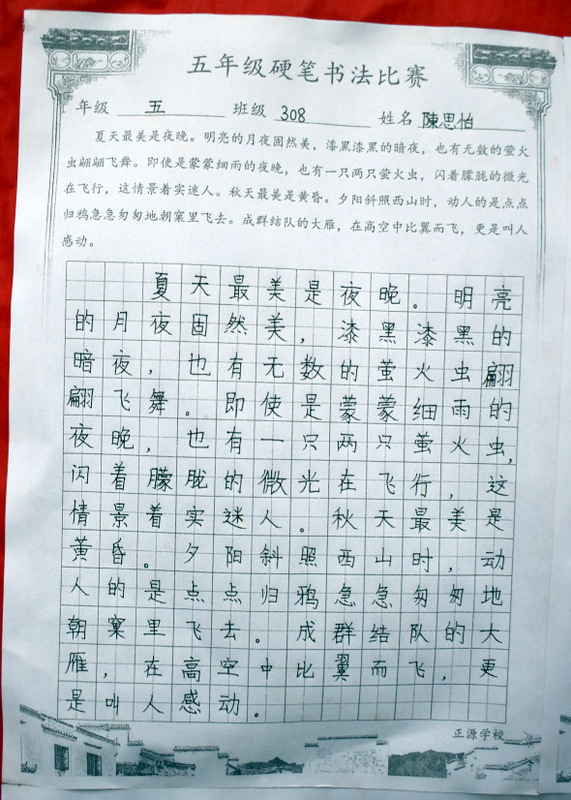 五年级硬笔书法比赛
年级 五 班级 308 姓名 陳思怡
夏天最美是夜晚。明亮的月夜固然美，漆黑漆黑的暗夜，也有无数的萤火
虫翩翩飞舞。即使是蒙蒙细雨的夜晚，也有一只两只萤火虫，闪着朦胧的微光
在飞行，这情景着实迷人。秋天最美是黄昏。夕阳斜照西山时，动人的是点点
归鸦急急匆匆地朝窠里飞去。成群结队的大雁，在高空中比翼而飞，更是叫人
感动。
夏天最美是夜晚。明亮
的月夜固然美，漆黑漆黑的
暗夜，也有无数的萤火虫翩
翩飞舞。即使是蒙蒙细雨的
夜晚，也有一只两只萤火虫，
闪着朦胧的微光在飞行，这
情景着实迷人。秋天最美是
黄昏。夕阳斜照西山时，动
人的是点点归鸦急急匆匆地
朝窠里飞去。成群结队的大
雁，在高空中比翼而飞，更
是叫人感动。
正源学校